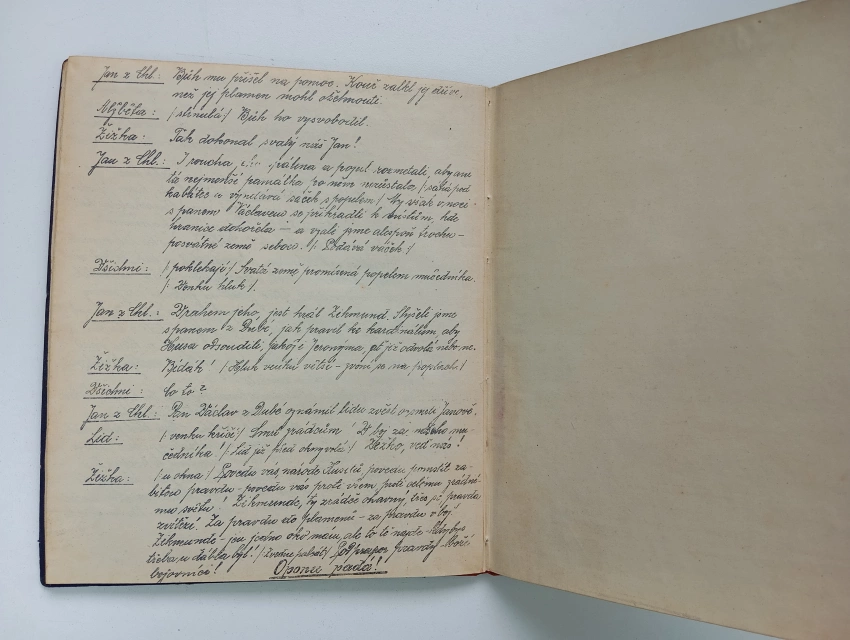 Jan z Chl.: Bůh mu přišel na pomoc. Kouř zalkl jej dříve,
než jej plamen mohl ožehnouti.
Alžběta: /strnulá/ Bůh ho vysvobodil.
Žižka: Tak dokonal svatý náš Jan!
Jan z Chl.: I roucha, pálena a popel rozmetali, aby ani
ta nejmenší památka po něm nezůstala, /sahá pod
kabátec a vyndává sáček s popelem/ My však v noci
s panem Václavem se přikradli k místům, kde
hranice dohořela – a vzali jme alespoň trochu –
posvátné země sebou. /: Podává váček :/
Všichni: /poklekají/ Svatá země promísená popelem mučedníka.
/: Venku hluk /.
Jan z Chl.: Vrahem jeho, jest král Zikmund. Slyšeli jsme
s panem z Dubé, jak pravil ke kardinálům, aby
Husa odsoudili, jakož i Jeronýma, ať již odvolá nebo ne.
Žižka: Bídák! /Hluk venku větší – zvoní se na poplach./
Všichni: Co to?
Jan z Chl.: Pan Václav z Dubé oznámil lidu zvěst o smrti Janově.
Lid: /venku křičí/ Smrt zrádcům! Ať žijí zai našeho mu-
čedníka! /Lid již před okny volá/ Žižko, veď nás!
Žižka: /u okna/ Povedu vás národe Husitů povedu pomstít za-
bitou pravdu – povedu vás proti všem proti celému zrádné-
mu světu! Zikmunde, ty zrádče ohavný, třes se pravda
zvítězí. Za pravdu do plamenů – za pravdu v boj
Zikmunde – jen jedno oko mám, ale to tě najde – kdybys
třeba u ďábla byl! /Zvedne palcát/ Pod prapor pravdy – Boží
bojovníci! Opona padá!